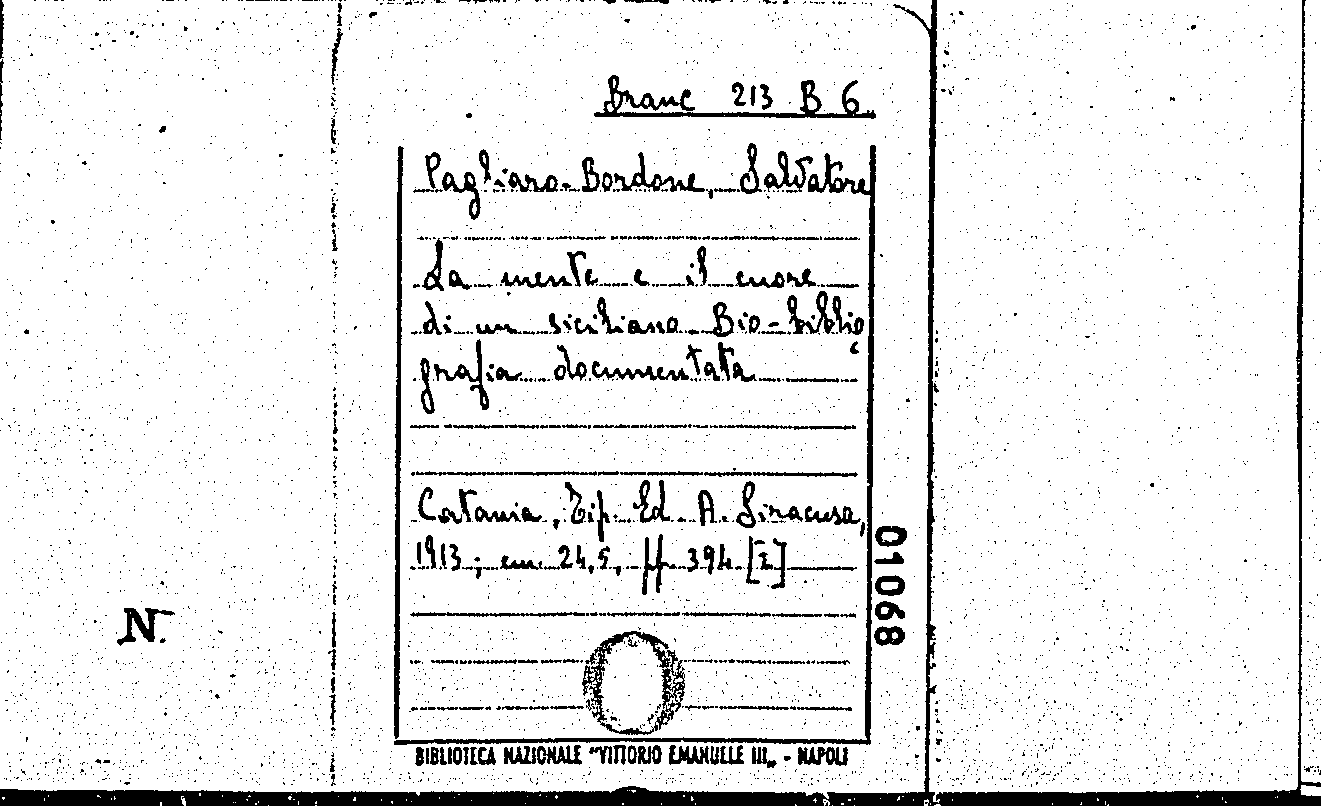 Branc 213 B 6
Pagliaro-Bordone, Salvatore
La mente e il cuore
di un siciliano. Bio-biblio
grafia documentata
Catania, Tip. Ed. A. Siracusa,
1913; cm. 24,5, pp. 394 [2]
01068
N.
BIBLIOTECA NAZIONALE "VITTORIO EMANUELE III„ - NAPOLI